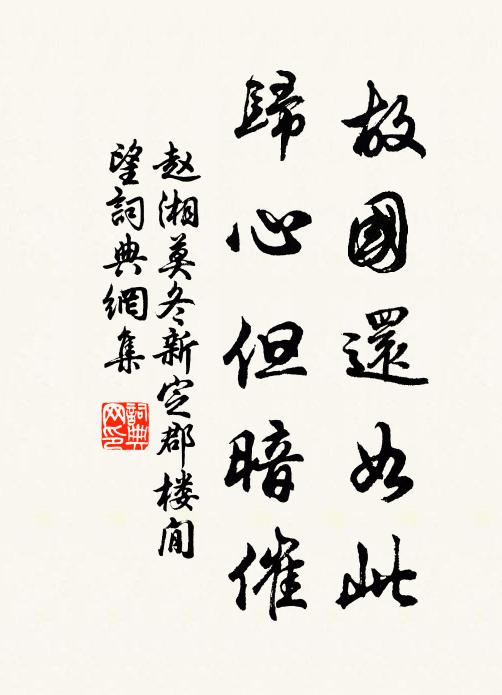 故國還如此
歸心但暗催
赵湘莫冬新定郡楼闲
望詞典網集
詞典网印